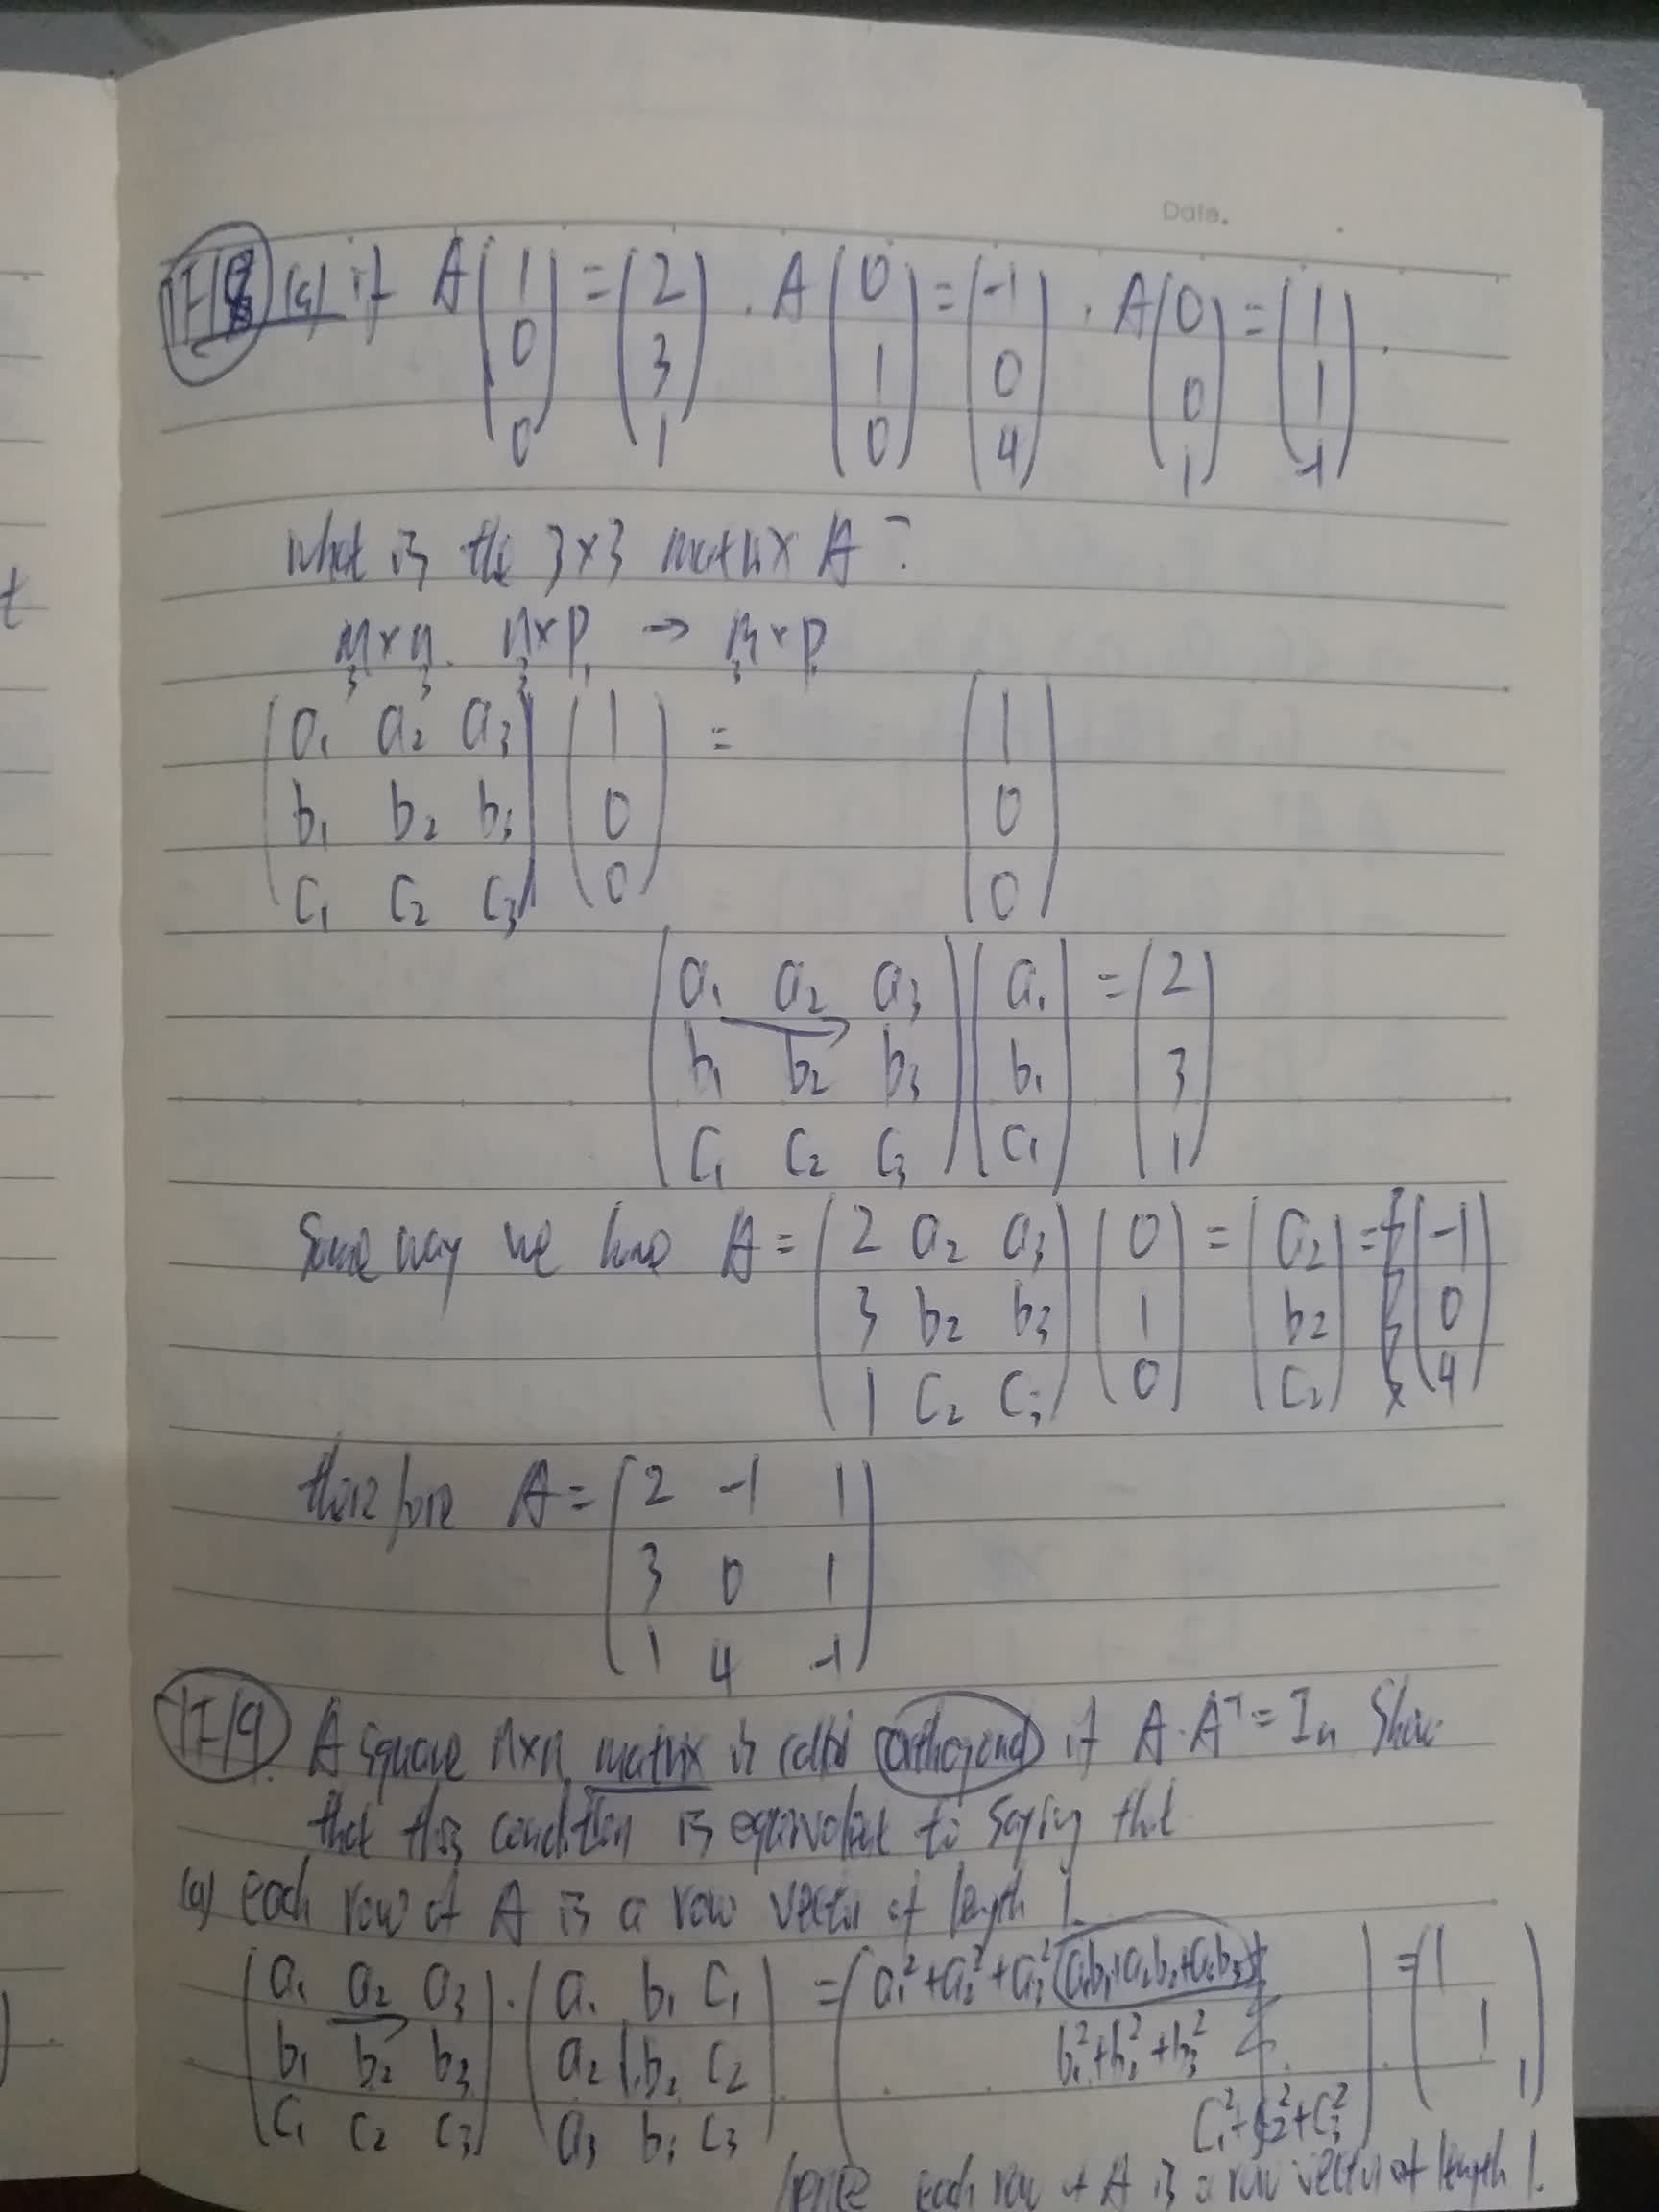 Date.
1F/8 (a) if A (1 0 0) = (2 3 1) . A (0 1 0) = (-1 0 4) . A (0 0 1) = (1 1 -1) .
what is the 3×3 matrix A?
m×n. n×p → m×p
3 3 3 1 3
(a₁ a₂ a₃) (1) = (1)
(b₁ b₂ b₃) (0) (0)
(c₁ c₂ c₃) (0) (0)
(a₁ a₂ a₃) (a₁) = (2)
(b₁ b₂ b₃) (b₁) (3)
(c₁ c₂ c₃) (c₁) (1)
Same way we have A = (2 a₂ a₃) (0) = (a₂) = (-1)
(3 b₂ b₃) (1) (b₂) (0)
(1 c₂ c₃) (0) (c₂) (4)
therefore A = (2 -1 1)
(3 0 1)
(1 4 -1)
1F/9. A square n×n matrix is called orthogonal if A·Aᵀ = In Show
that this condition is equivalent to saying that
(a) each row of A is a row vector of length 1.
(a₁ a₂ a₃) · (a₁ b₁ c₁) = (a₁²+a₂²+a₃² a₁b₁+a₂b₂+a₃b₃) = (1
(b₁ b₂ b₃) (a₂ b₂ c₂) b₁²+b₂²+b₃² 1
(c₁ c₂ c₃) (a₃ b₃ c₃) c₁²+c₂²+c₃²) 1)
hence each row of A is a row vector of length 1.